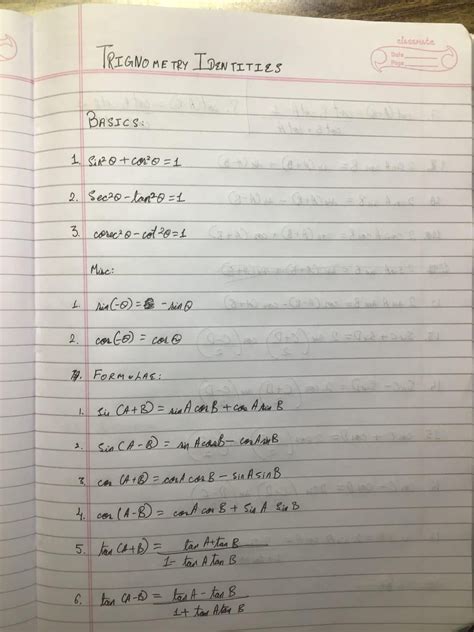 classmate
Date
Page
TRIGNOMETRY IDENTITIES
BASICS:
1. Sin²θ + cos²θ = 1
2. Sec²θ - tan²θ = 1
3. cosec²θ - cot²θ = 1
Misc:
1. sin(-θ) = - sinθ
2. cos(-θ) = cosθ
FORMULAS:
1. Sin (A+B) = sinA cosB + cosA sinB
2. Sin (A-B) = sinA cosB - cosA sinB
3. cos (A+B) = cosA cosB - sinA sinB
4. cos (A-B) = cosA cosB + sinA sinB
5. tan (A+B) = tanA + tan B
1 - tanA tanB
6. tan (A-B) = tanA - tan B
1 + tanA tanB